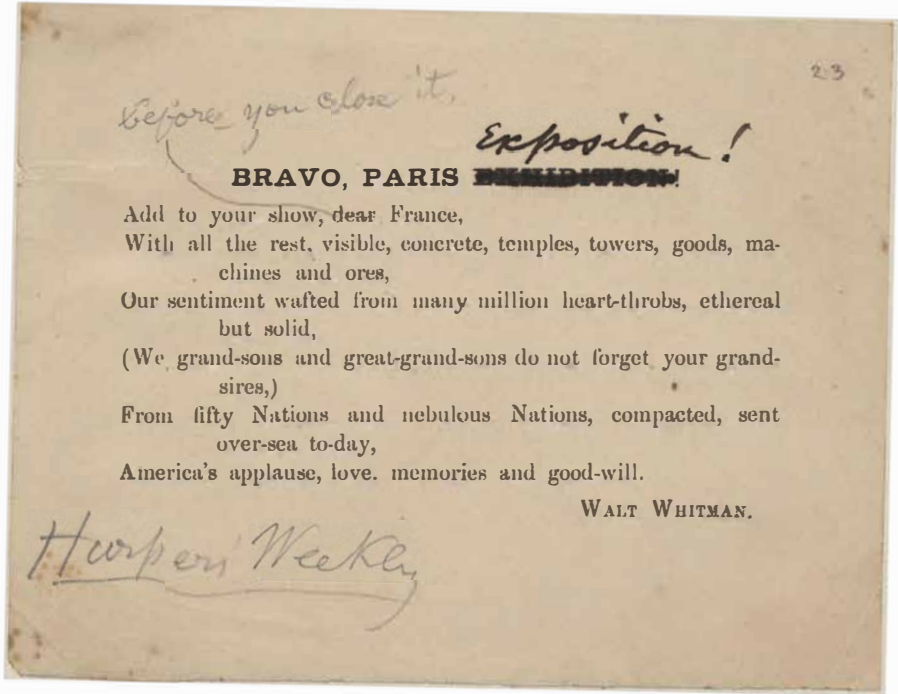 23
before you close it,
Exposition!
BRAVO, PARIS EXHIBITION!
Add to your show, dear France,
With all the rest, visible, concrete, temples, towers, goods, ma-
chines and ores,
Our sentiment wafted from many million heart-throbs, ethereal
but solid,
(We grand-sons and great-grand-sons do not forget your grand-
sires,)
From fifty Nations and nebulous Nations, compacted, sent
over-sea to-day,
America's applause, love. memories and good-will.
WALT WHITMAN.
Harpers' Weekly